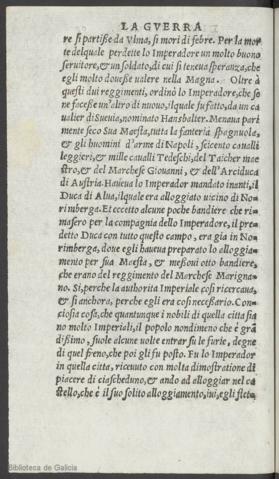 LA GVERRA
re si partisse da Vlma, si morì di febre. Per la mor
te del quale perdette lo Imperadore un molto buono
seruitore, & un soldato, di cui si teneua speranza, che
egli molto douesse ualere nella Magna. Oltre à
questi dui reggimenti, ordinò lo Imperadore, che se
ne facesse un'altro di nuouo, il quale fu fatto, da un ca
ualier di Sueuia, nominato Hansbalter. Menaua pari
mente seco Sua Maestà, tutta la fanteria spagnuola,
& gli huomini d'arme di Napoli, seicento caualli
leggieri, & mille caualli Tedeschi, del Taicher mae
stro, & del Marchese Giouanni, & dell'Arciduca
di Austria. Haueua lo Imperador mandato inanti, il
Duca di Alua, ilquale era alloggiato uicino di No-
rimberga. Et eccetto alcune poche bandiere che ri-
masero per la compagnia dello Imperadore, il pre-
detto Duca con tutto questo campo, era gia in No-
rimberga, doue egli haueua preparato lo alloggia-
mento per sua Maestà, & messoui otto bandiere,
che erano del reggimento del Marchese Marigna-
no. Si, perche la authorità Imperiale cosi ricercaua,
& si anchora, perche egli era cosi necessario. Con-
ciosia cosa, che quantunque i nobili di quella città sia
no molto Imperiali, il popolo nondimeno che è grã
dissimo, suole alcune uolte entrar su le furie, degne
di quel freno, che poi gli fu posto. Fu lo Imperador
in quella citta, riceuuto con molta dimostratione di
piacere di ciascheduno, & andò ad alloggiar nel ca
stello, che è il suo solito alloggiamento, iui, egli stete
Biblioteca de Galicia